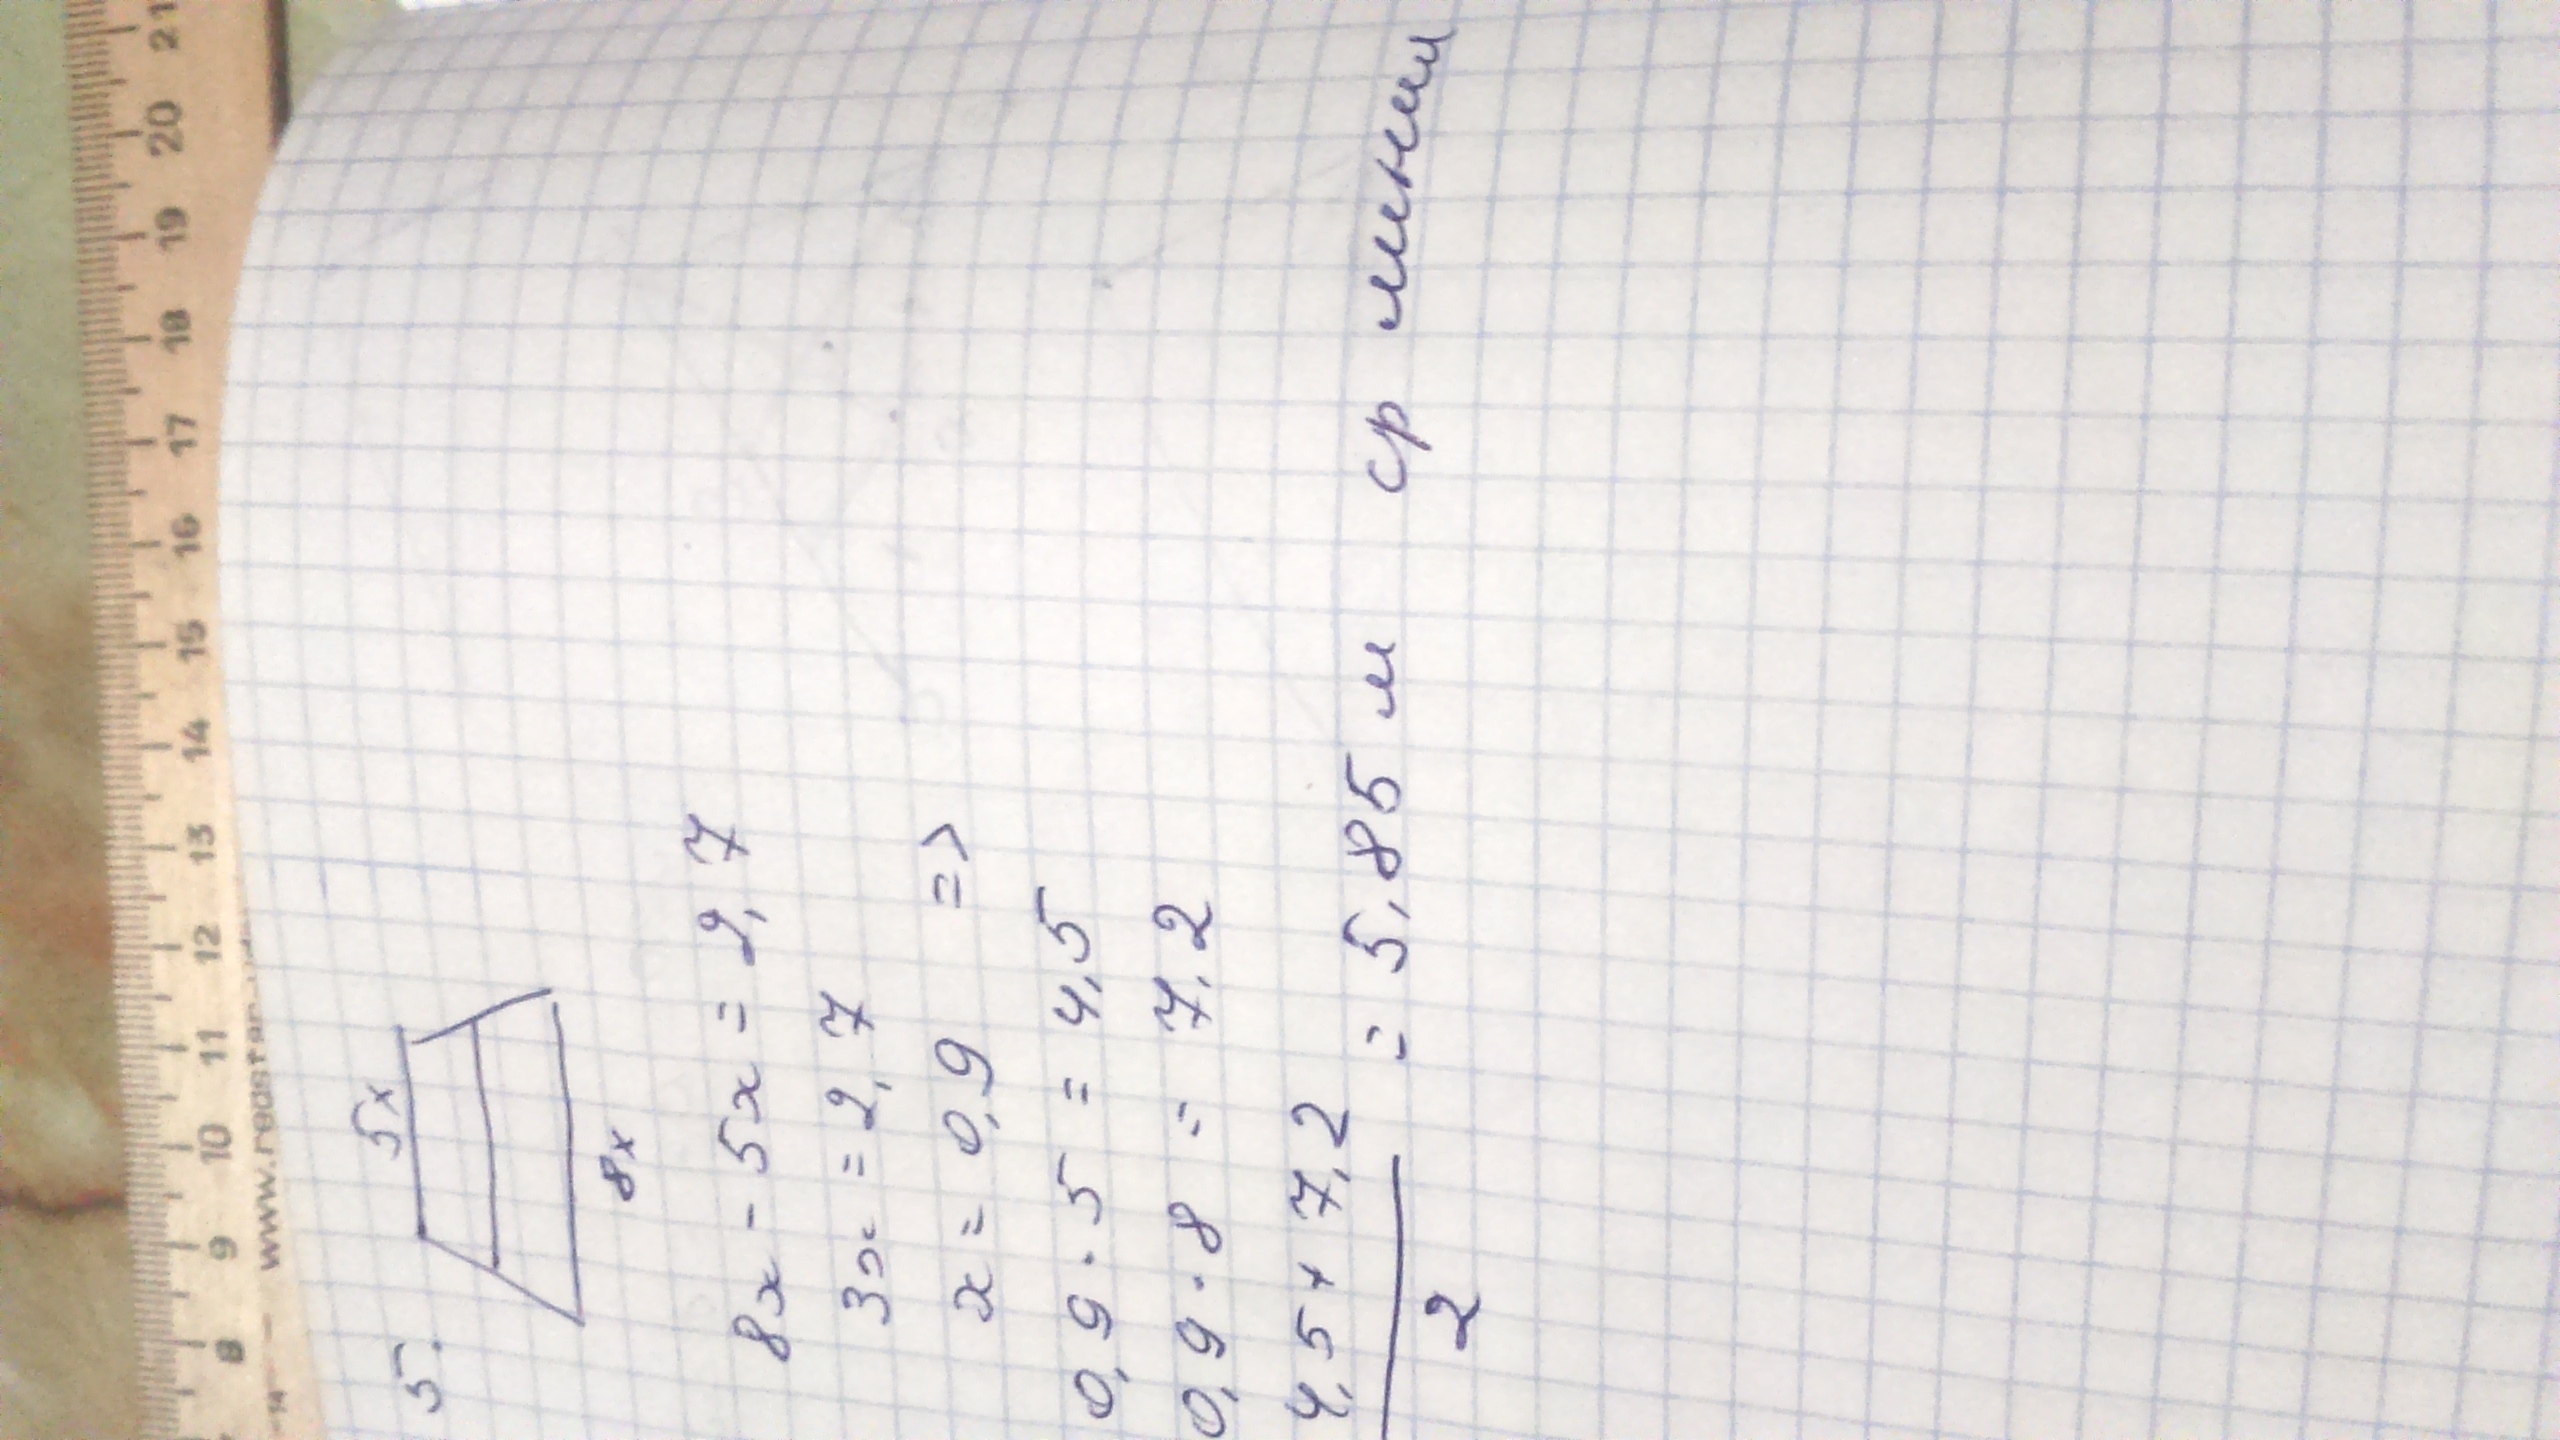 5.
5x
8x
8x - 5x = 2,7
3x = 2,7
x = 0,9 =>
0,9 · 5 = 4,5
0,9 · 8 = 7,2
4,5 + 7,2
2
= 5,85 м ср линии
8 9 10 11 12 13 14 15 16 17 18 19 20 21